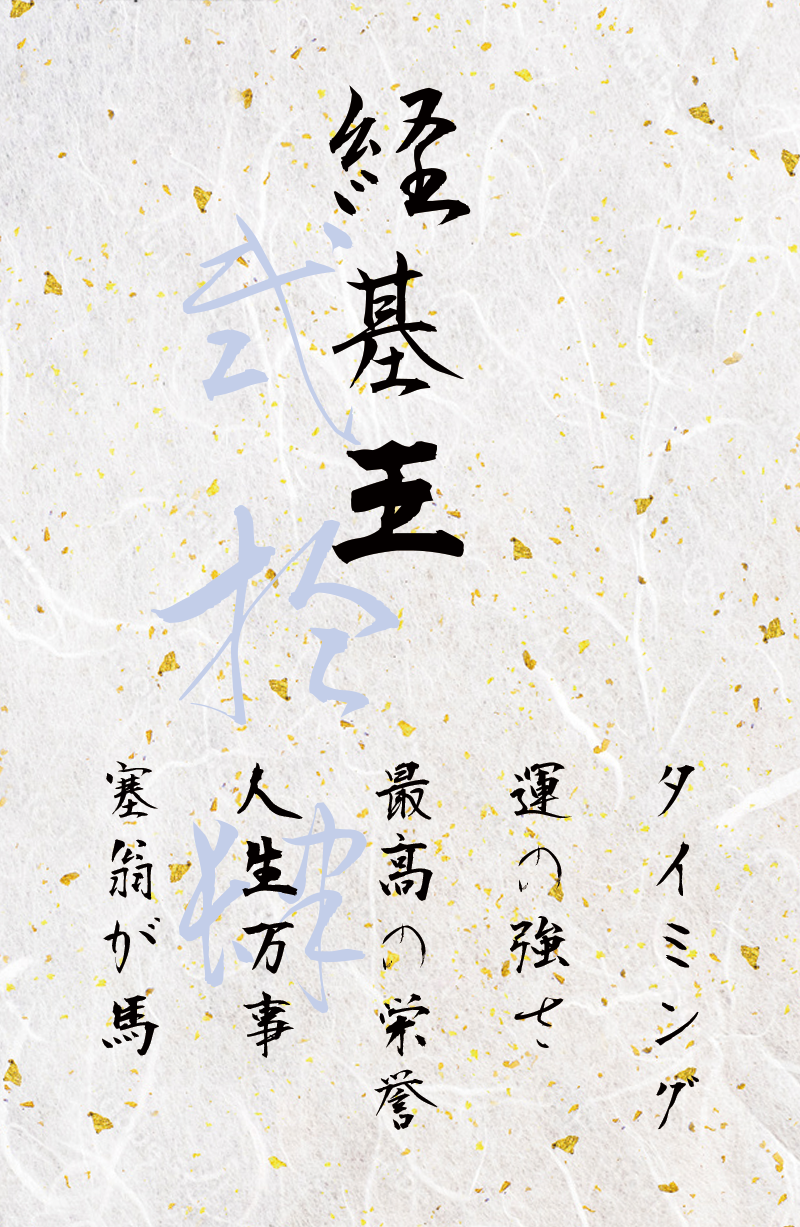 経基王
弐拾肆
タイミング
運の強さ
最高の栄誉
人生万事
塞翁が馬